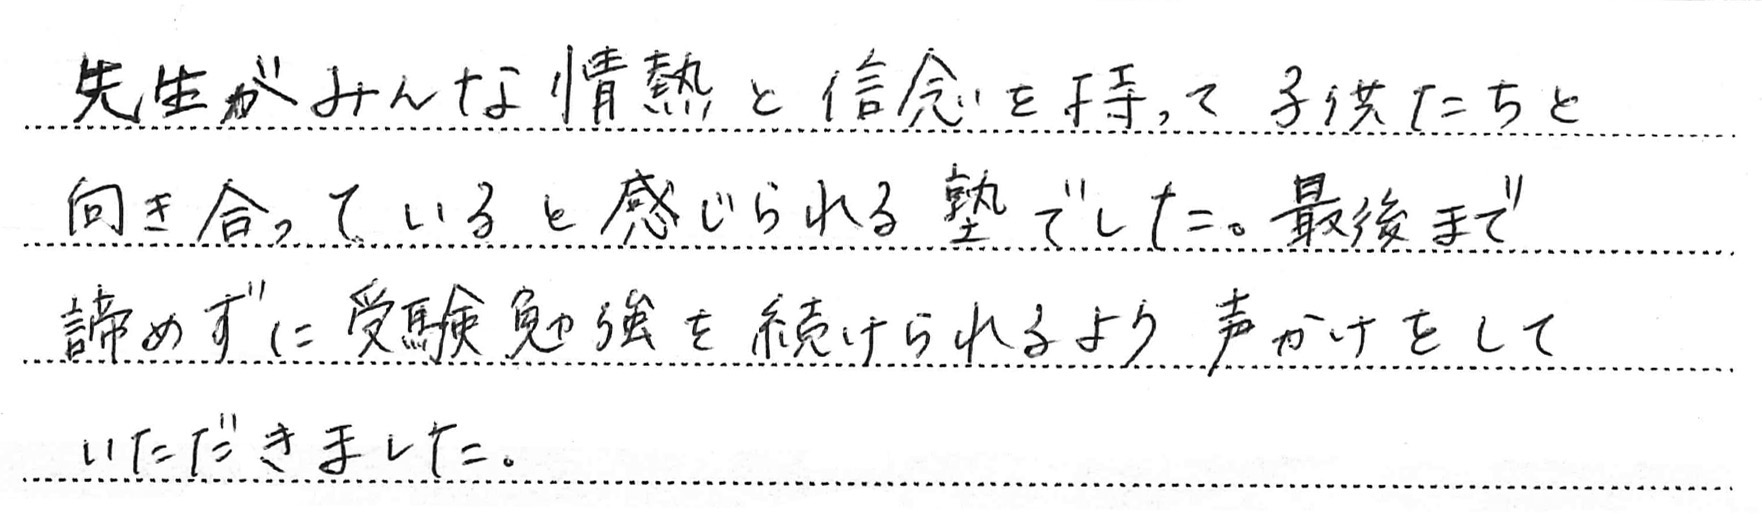 先生がみんな情熱と信念を持って子供たちと
向き合っていると感じられる塾でした。最後まで
諦めずに受験勉強を続けられるよう声かけをして
いただきました。